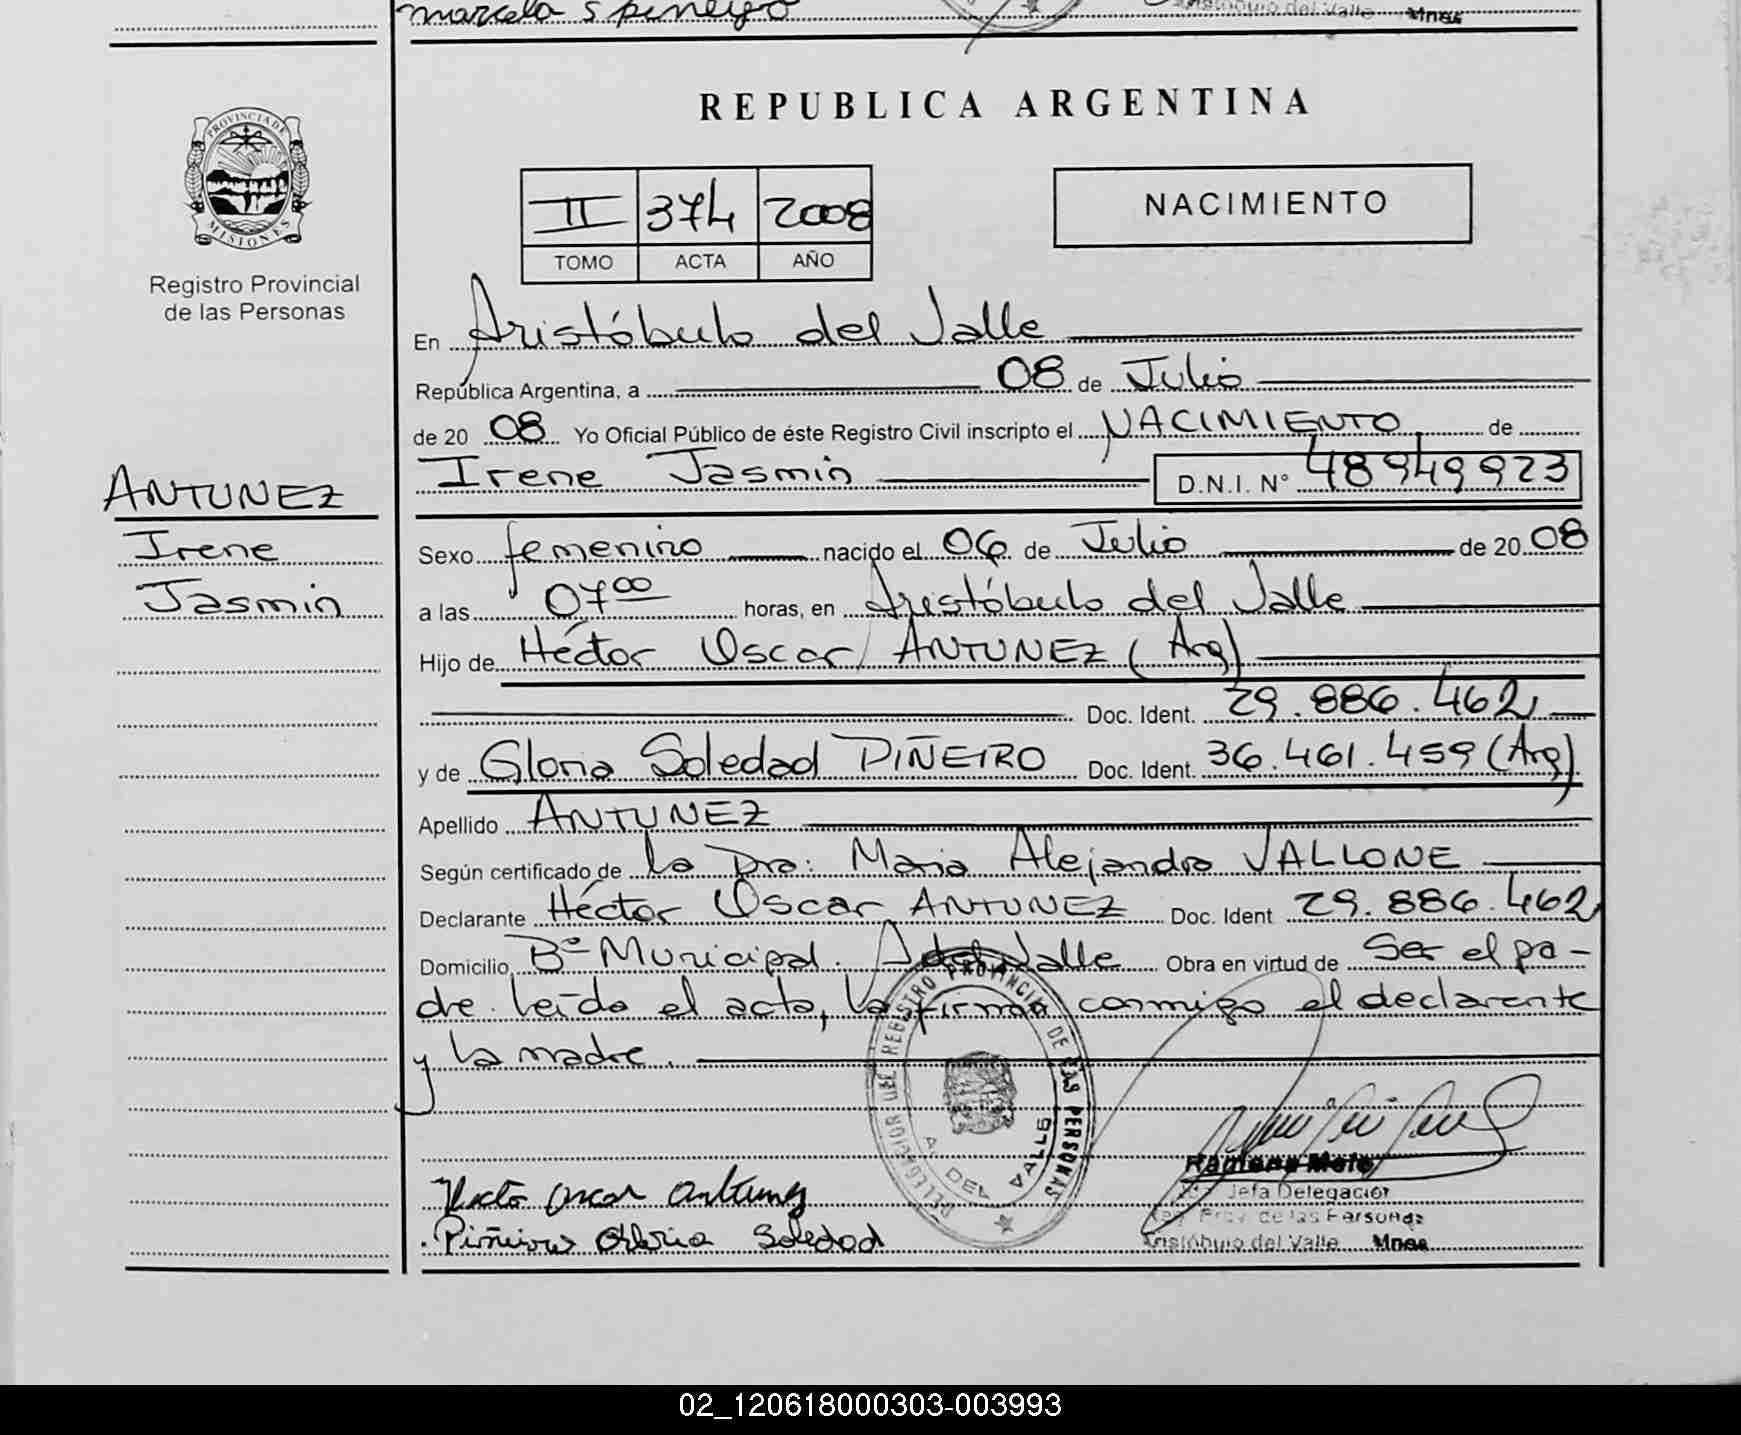 marcelo spineyro
Aristóbulo del Valle Mnes
PROVINCIA DE
MISIONES
Registro Provincial
de las Personas
REPUBLICA ARGENTINA
II 374 2008
TOMO ACTA AÑO
NACIMIENTO
En Aristóbulo del Valle
República Argentina, a 08 de Julio
de 20 08 Yo Oficial Público de éste Registro Civil inscripto el NACIMIENTO de
Irene Jasmin D.N.I. N° 48949923
ANTUNEZ
Irene
Jasmin
Sexo femenino nacido el 06 de Julio de 20 08
a las 07 00 horas, en Aristóbulo del Valle
Hijo de Héctor Oscar ANTUNEZ (Arg)
Doc. Ident. 29.886.462
y de Gloria Soledad PIÑEIRO Doc. Ident. 36.461.459 (Arg)
Apellido ANTUNEZ
Según certificado de la Dra: Maria Alejandra VALLONE
Declarante Héctor Oscar ANTUNEZ Doc. Ident 29.886.462
Domicilio Bº Municipal. A del Valle Obra en virtud de Ser el pa-
dre. leída el acta, la firman conmigo el declarante
y la madre.
DELEGACION DEL REGISTRO PROVINCIAL DE LAS PERSONAS
A. DEL VALLE
Hecto Oscar Antunez
Piñeiro Gloria Soledad
Ramona Melo
Jefa Delegación
Reg. Prov. de las Personas
Aristóbulo del Valle Mnes
02_120618000303-003993